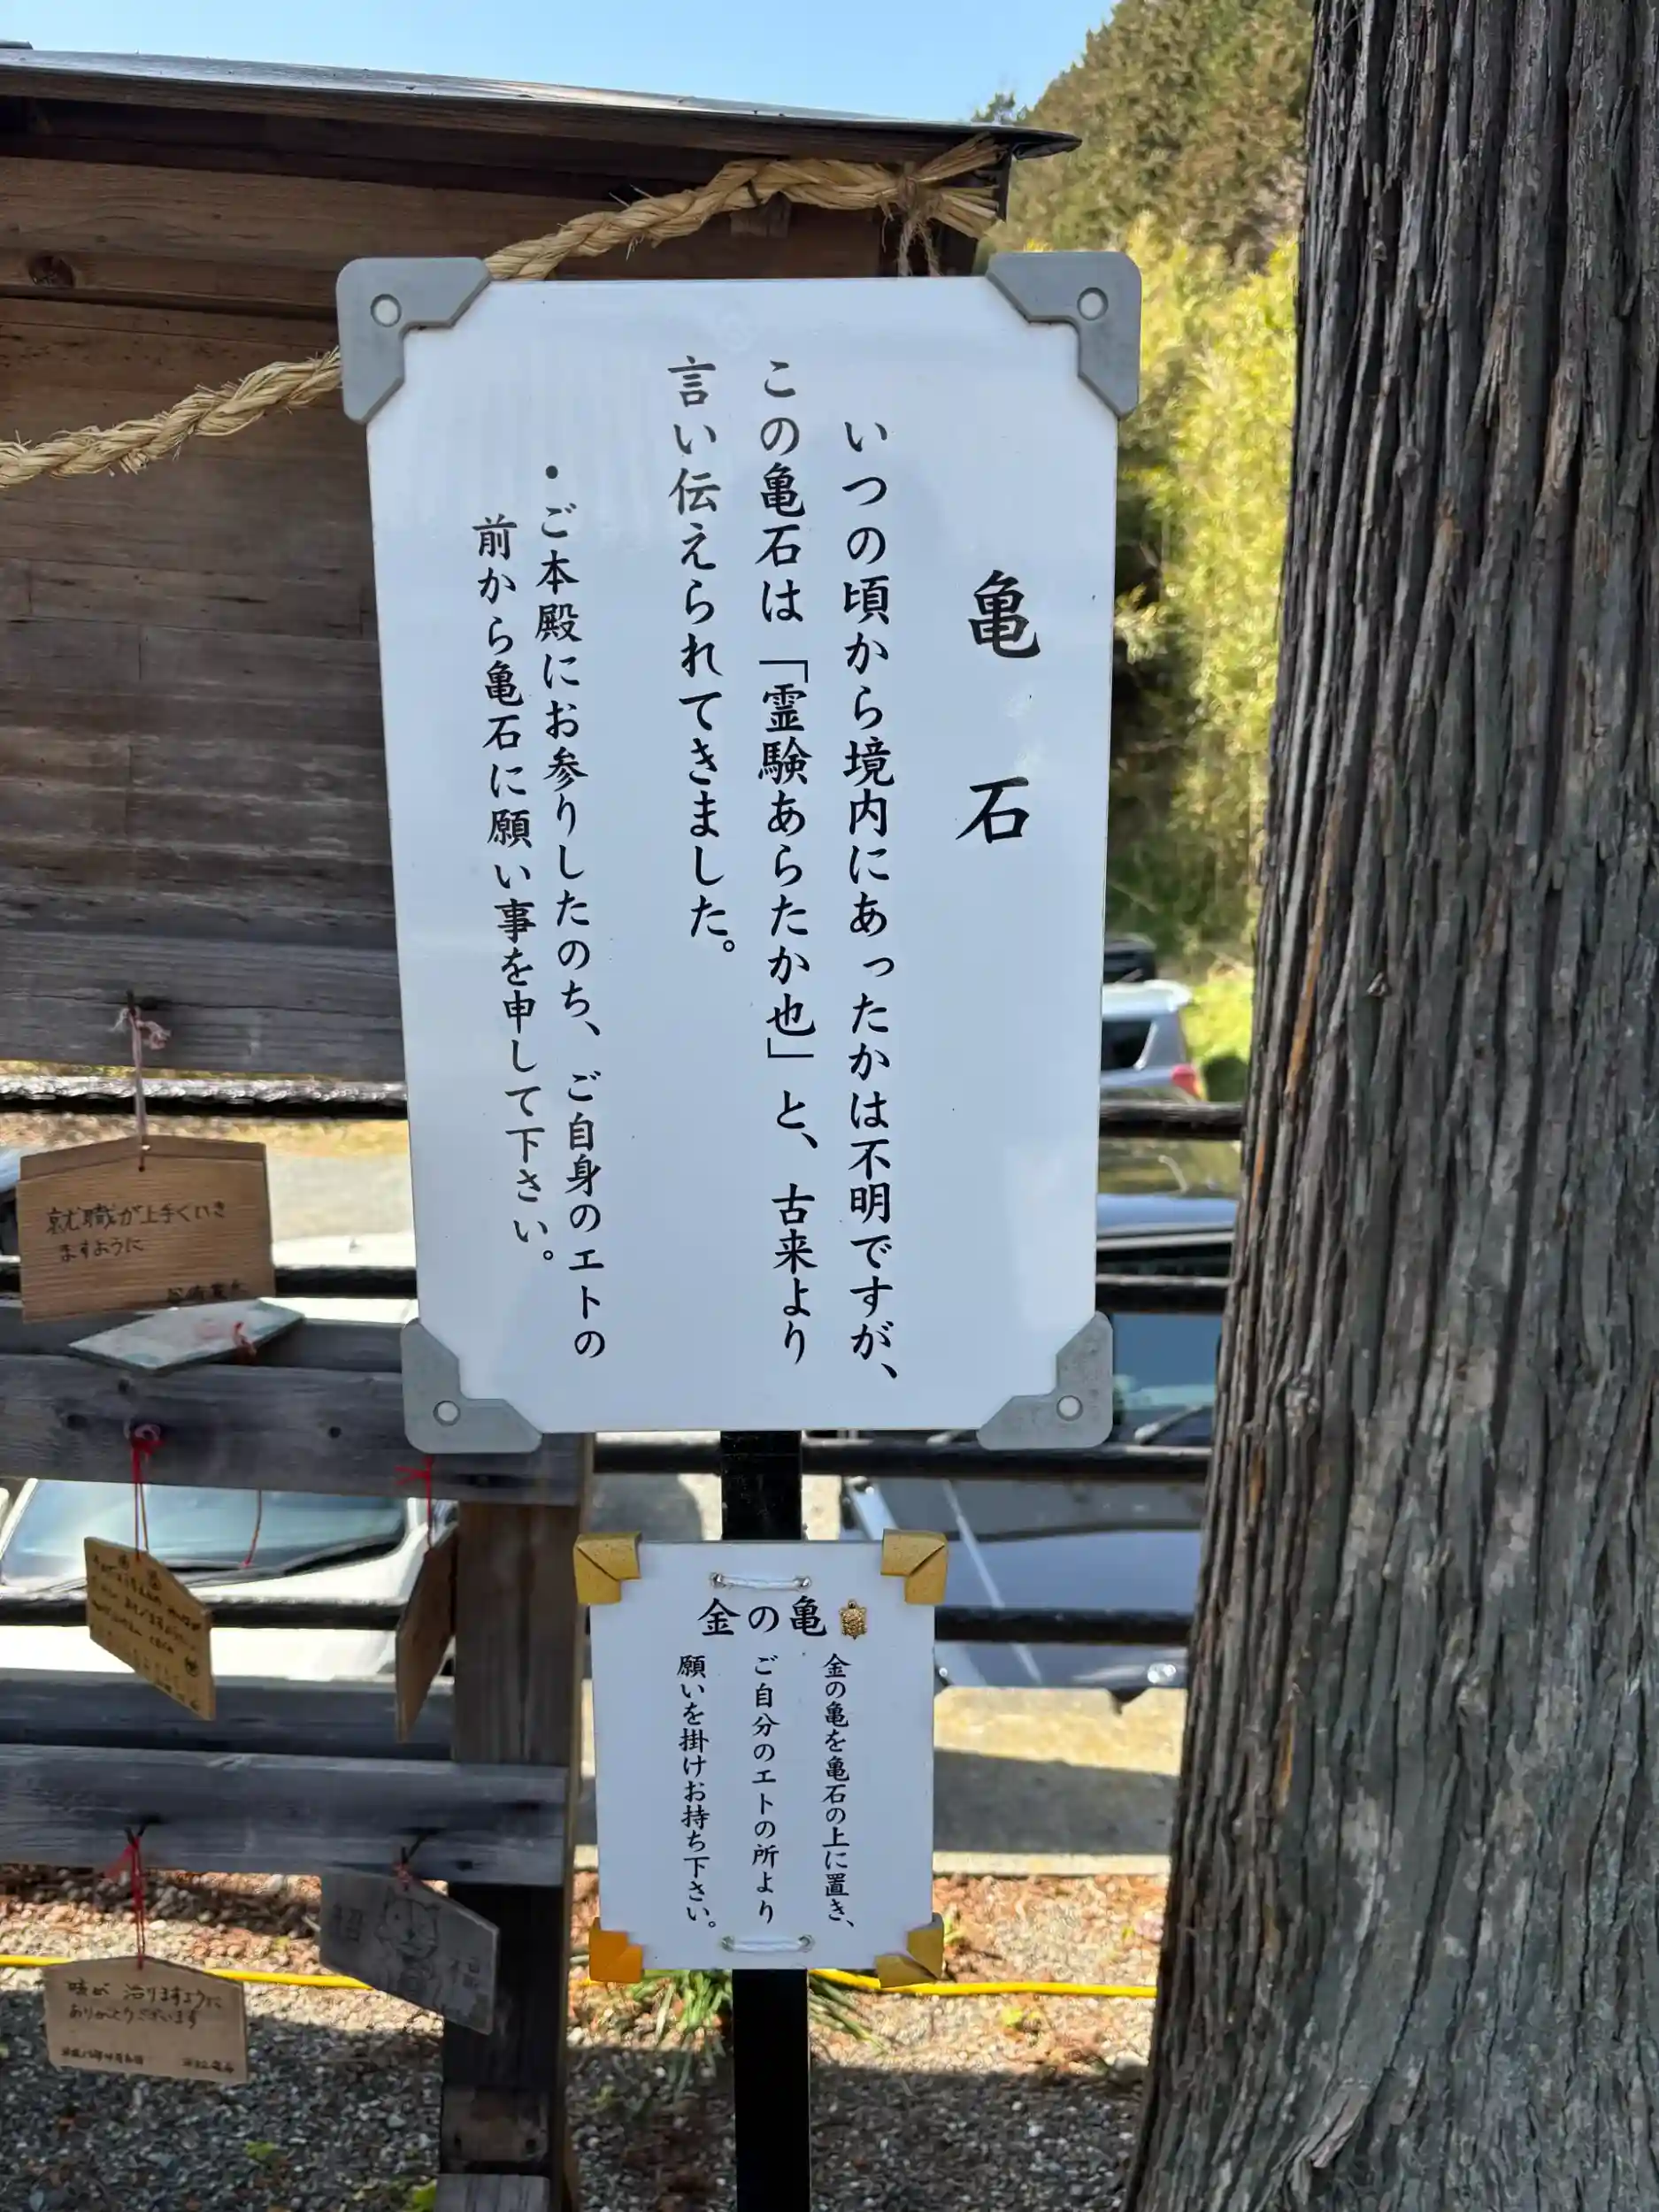 亀石
いつの頃から境内にあったかは不明ですが、
この亀石は「霊験あらたか也」と、古来より
言い伝えられてきました。
・ご本殿にお参りしたのち、ご自身のエトの
前から亀石に願い事を申して下さい。
金の亀
金の亀を亀石の上に置き、
ご自分のエトの所より
願いを掛けお持ち下さい。
就職が上手くいき
ますように
治りますように
ありがとうございます
福